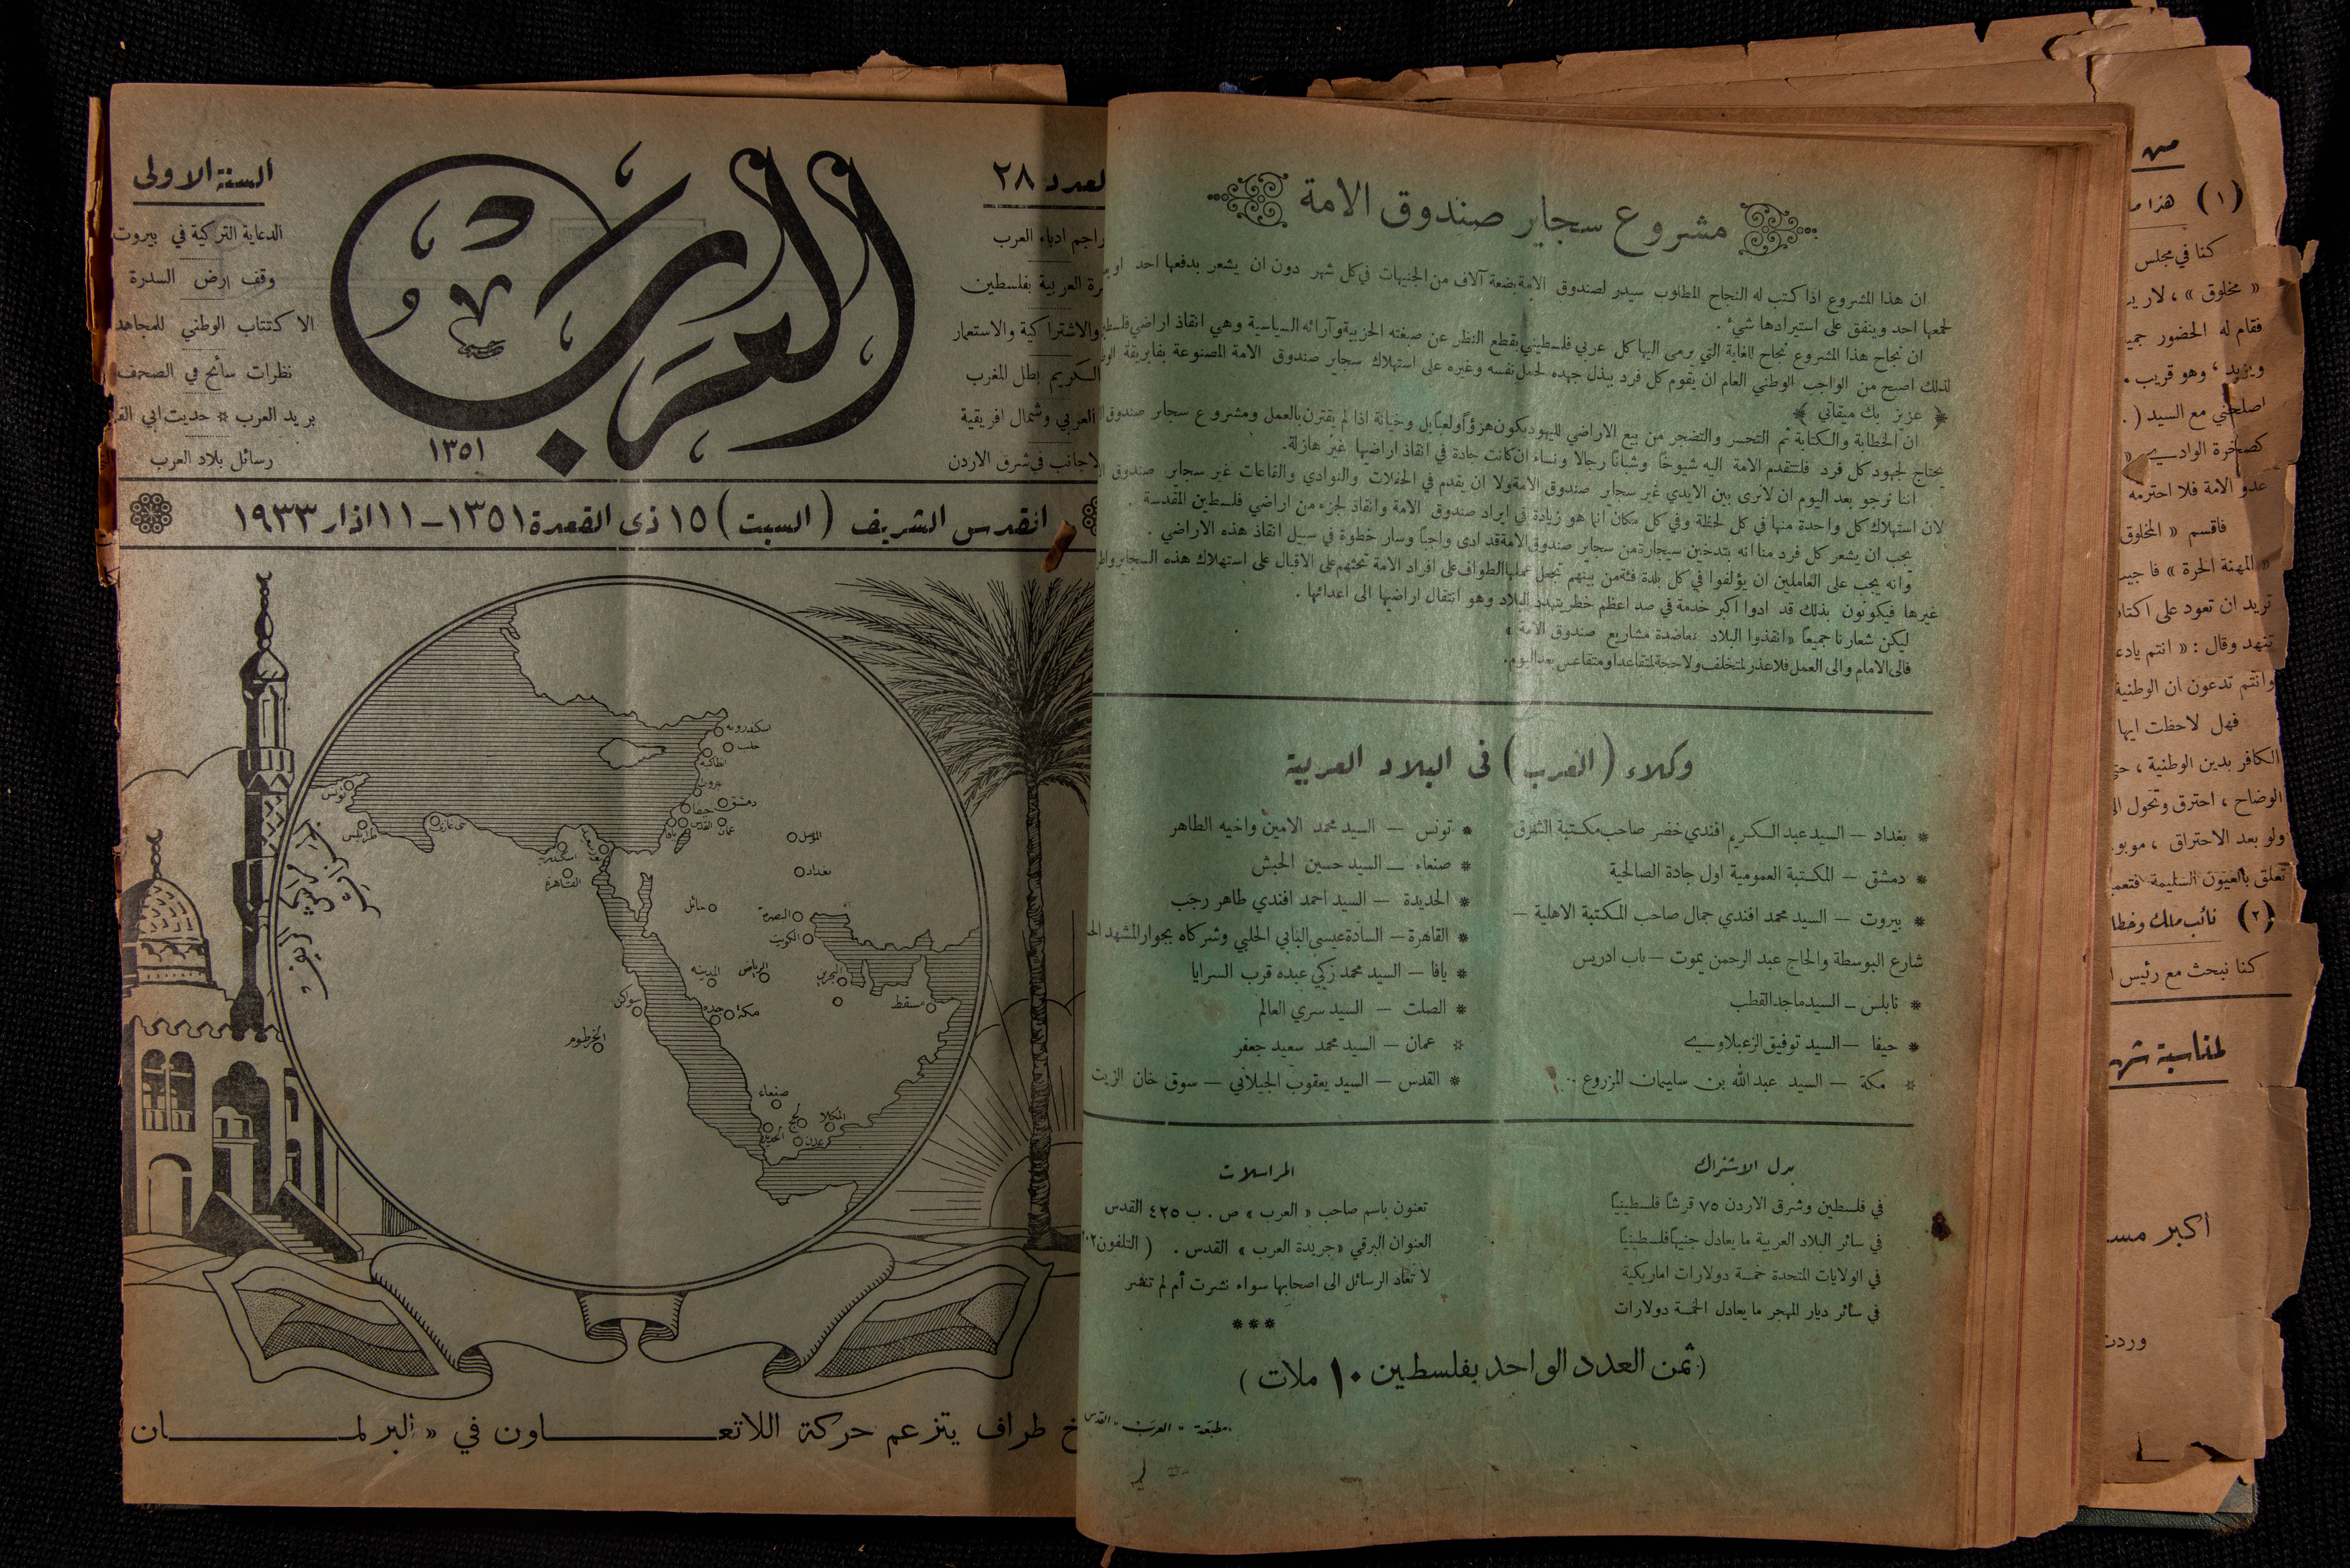 مشروع سجاير صندوق الامة
ان هذا المشروع اذا كتب له النجاح المطلوب سيدر لصندوق الامة بضعة آلاف من الجنيهات في كل شهر دون ان يشعر بدفعها احد او
لجمعها احد وينفق على استيرادها شيء .
ان نجاح هذا المشروع نجاح للغاية التي يرمي اليها كل عربي فلسطيني بقطع النظر عن صبغته الحزبية وآرائه السياسية وهي انقاذ اراضي
لذلك اصبح من الواجب الوطني العام ان يقوم كل فرد ببذل جهده لحمل نفسه وغيره على استهلاك سجاير صندوق الامة المصنوعة بفابريقة
﴿ عزيز بك ميقاتي ﴾
ان الخطابة والكتابة ثم التحسر والتضجر من بيع الاراضي لليهود يكون هزؤاً ولعباً بل وخيانة اذا لم يقترن بالعمل ومشروع سجاير صندوق
يحتاج لجهود كل فرد فلتتقدم الامة اليه شيوخاً وشباناً رجالا ونساء ان كانت جادة في انقاذ اراضيها غير هازلة.
اننا نرجو بعد اليوم ان لا نرى بين الايدي غير سجاير صندوق الامة ولا ان يقدم في الحفلات والنوادي والقاعات غير سجاير صندوق
لان استهلاك كل واحدة منها في كل لحظة وفي كل مكان انما هو زيادة في ايراد صندوق الامة وانقاذ لجزء من اراضي فلسطين المقدسة .
يجب ان يشعر كل فرد منا انه بتدخين سيجارة من سجاير صندوق الامة قد ادى واجباً وسار خطوة في سبيل انقاذ هذه الاراضي .
وانه يجب على العاملين ان يؤلفوا في كل بلدة فئة من بينهم تجعل عملها الطواف على افراد الامة تحثهم على الاقبال على استهلاك هذه السجاير
غيرها فيكونون بذلك قد ادوا اكبر خدمة في صد اعظم خطر يتهدد البلاد وهو انتقال اراضيها الى اعدائها .
ليكن شعارنا جميعاً «انقذوا البلاد بمعاضدة مشاريع صندوق الامة»
فالى الامام والى العمل فلا عذر لمتخلف ولا حجة لمتقاعد او متقاعس بعد اليوم.
وكلاء (العرب) في البلاد العربية
* بغداد — السيد عبد الكريم افندي خضر صاحب مكتبة الشرق
* دمشق — المكتبة العمومية اول جادة الصالحية
* بيروت — السيد محمد افندي جمال صاحب المكتبة الاهلية —
شارع البوسطة والحاج عبد الرحمن يموت — باب ادريس
* نابلس — السيد ماجد القطب
* حيفا — السيد توفيق الزعبلاوي
* مكة — السيد عبد الله بن سليمان المزروع
* تونس — السيد محمد الامين واخيه الطاهر
* صنعاء — السيد حسين الحبش
* الحديدة — السيد احمد افندي طاهر رجب
* القاهرة — السادة عيسى البابي الحلبي وشركاه بجوار المشهد
* يافا — السيد محمد زكي عبده قرب السرايا
* الصلت — السيد سري العالم
* عمان — السيد محمد سعيد جعفر
* القدس — السيد يعقوب الجيلاني — سوق خان الزيت
بدل الاشتراك
في فلسطين وشرق الاردن ٧٥ قرشاً فلسطينياً
في سائر البلاد العربية ما يعادل جنيهاً فلسطينياً
في الولايات المتحدة خمسة دولارات اماريكية
في سائر ديار المهجر ما يعادل الخمسة دولارات
المراسلات
تعنون باسم صاحب «العرب» ص . ب ٤٢٥ القدس
العنوان البرقي «جريدة العرب» القدس . ( التلفون
لا تعاد الرسائل الى اصحابها سواء نشرت أم لم تنشر
***
(ثمن العدد الواحد بفلسطين ١٠ ملات)
مطبعة «العرب» القدس
العدد ٢٨
العرب
١٣٥١
السنة الاولى
ادباء العرب
العربية بفلسطين
والاشتراكية والاستعمار
الكريم بطل المغرب
العربي وشمال افريقية
في شرق الاردن
الدعاية التركية في بيروت
وقف ارض السدرة
الاكتتاب الوطني للمجاهد
نظرات سائح في الصحف
بريد العرب * حديث ابي
رسائل بلاد العرب
القدس الشريف (السبت) ١٥ ذي القعدة ١٣٥١ — ١١ اذار ١٩٣٣
اسكندرونة
حلب
انطاكية
بيروت
دمشق
حيفا
يافا
القدس
عمان
تونس
طرابلس
بني غازي
اسكندرية
القاهرة
الموصل
بغداد
حائل
البصرة
الكويت
المدينه
الرياض
البحرين
مسقط
سواكن
جده
مكة
الخرطوم
صنعاء
الحديدة
لحج
عدن
المكلا
طراف يتزعم حركة اللاتعـــاون في «البرلمـــان
(١) هذا
كنا في مجلس
« مخلوق » ، لا
فقام له الحضور
ويزيد ، وهو قريب
اصلحني مع السيد (
كصخرة الوادي
عدو الامة فلا احترمه
فاقسم « المخلوق
« المهنة الحرة »
تريد ان تعود على
تنهد وقال : « انتم
وانتم تدعون ان الوطنية
فهل لاحظت ايها
الكافر بدين الوطنية ،
الوضاح ، احترق وتحول
ولو بعد الاحتراق ،
تعلق بالعيون السليمة
(٢) نائب ملك
كنا نبحث مع رئيس
لمناسبة
أكبر